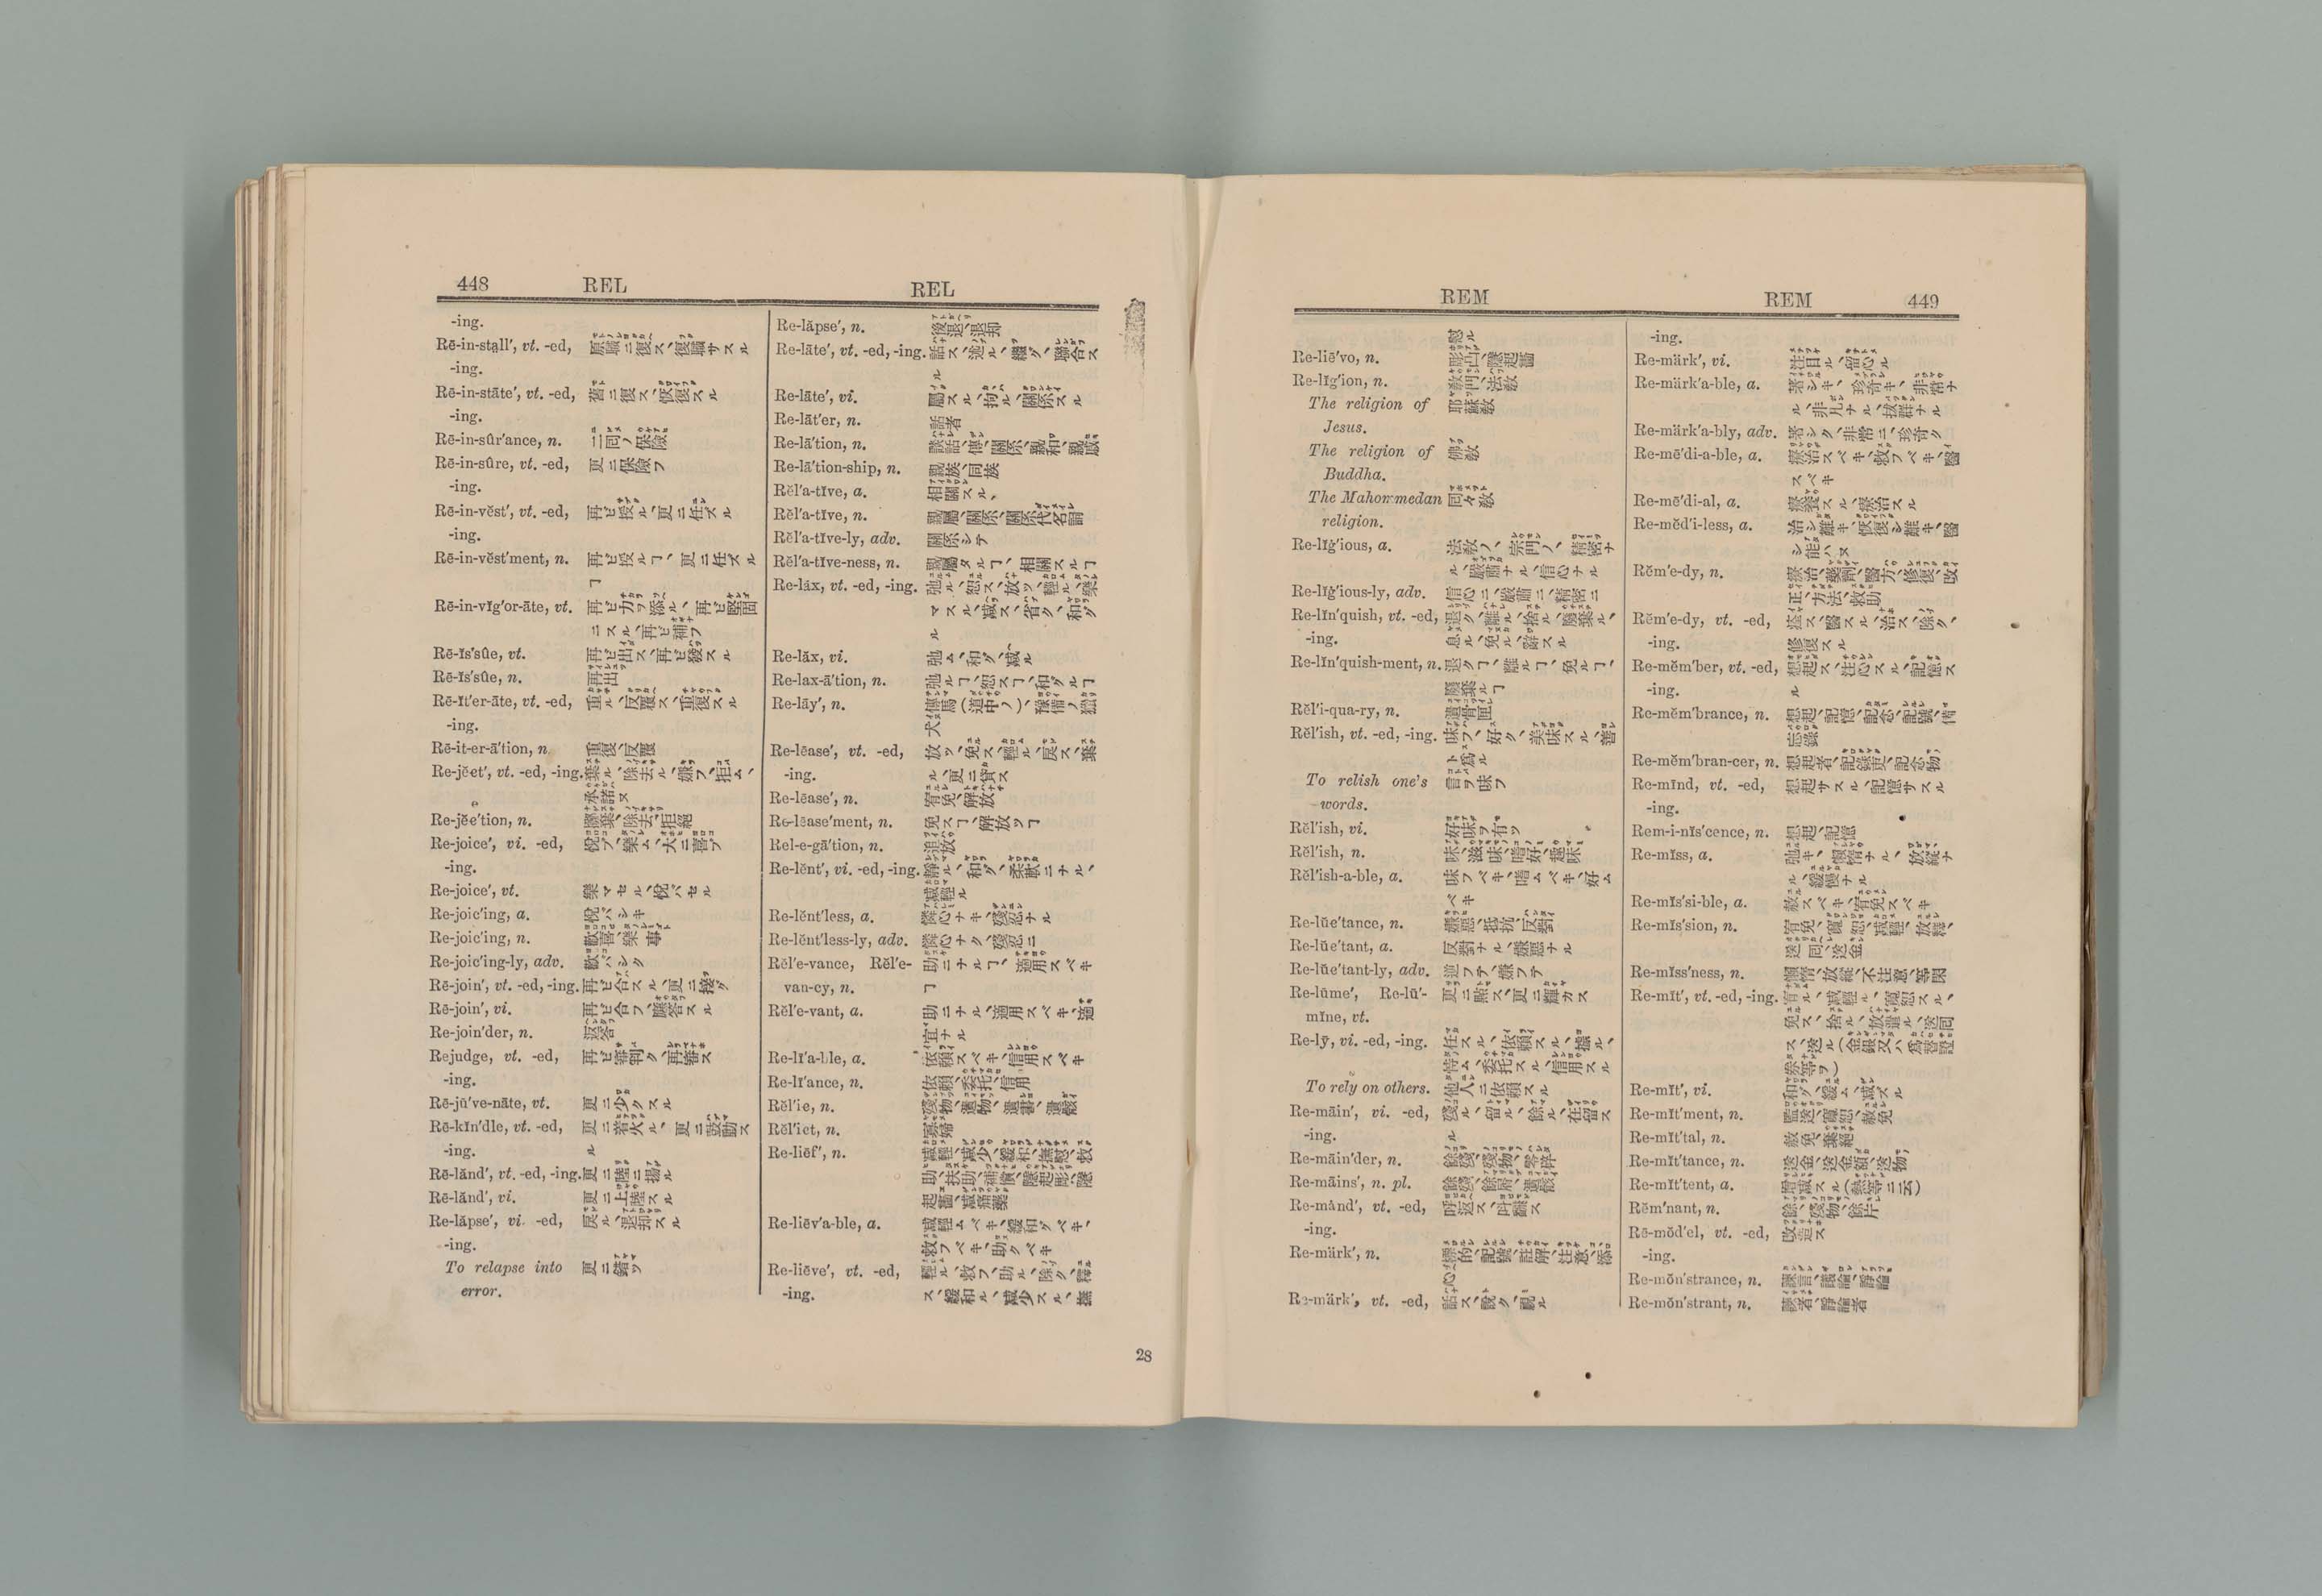 448 REL REL
-ing.
Rē-in-stạll′, vt. -ed, 原職ニ復ス、復職サスル
-ing.
Rē-in-stāte′, vt. -ed, 舊ニ復ス、恢復スル
-ing.
Rē-in-sûr′ance, n. 二囘ノ保險
Rē-in-sûre, vt. -ed, 更ニ保險フ
-ing.
Rē-in-vĕst′, vt. -ed, 再ビ授ル、更ニ任ズル
-ing.
Rē-in-vĕst′ment, n. 再ビ授ルヿ、更ニ任ズル
ヿ
Rē-in-vĭg′or-āte, vt. 再ビ力ヲ添ル、再ビ堅固
ニスル、再ビ補フ
Rē-ĭs′sûe, vt. 再ビ出ス、再ビ發スル
Rē-ĭs′sûe, n. 再出
Rē-ĭt′er-āte, vt. -ed, 重ル、反覆ス、重復スル
-ing.
Rē-it-er-ā′tion, n. 重復、反覆
Re-jĕet′, vt. -ed, -ing. 棄ル、除去ル、嫌フ、拒ム、
承諾ヌ
Re-jĕe′tion, n. 廢棄、除去、拒絕
Re-joice′, vi. -ed, 悅ブ、樂ム、大ニ喜ブ
-ing.
Re-joice′, vt. 樂マセル、悅バセル
Re-joic′ing, a. 悅バシキ
Re-joic′ing, n. 歡喜、樂事
Re-joic′ing-ly, adv. 歡バシク
Rē-join′, vt. -ed, -ing. 再ビ合スル、更ニ接グ
Rē-join′, vi. 再ビ合フ、應答スル
Re-join′der, n. 返答
Rejudge, vt. -ed, 再ビ審判ク、再審ス
-ing.
Rē-jū′ve-nāte, vt. 更ニ少クスル
Rē-kĭn′dle, vt. -ed, 更ニ着火ル、更ニ鼓動ス
-ing. ル
Rē-lănd′, vt. -ed, -ing. 更ニ陸ニ揚ル
Rē-lănd′, vi. 更ニ上陸スル
Re-lăpse′, vi. -ed, 戾ル、退却スル
-ing.
To relapse into 更ニ錯ツ
error.
Re-lăpse′, n. 後退、退却
Re-lāte′, vt. -ed, -ing. 話ス、述ル、繼グ、聯合ス
ル
Re-lāte′, vi. 屬スル、拘ル、關係スル
Re-lāt′er, n. 話者
Re-lā′tion, n. 談話、傳、關係、親和、親戚
Re-lā′tion-ship, n. 親族、同族
Rĕl′a-tĭve, a. 相關スル、
Rĕl′a-tĭve, n. 親屬、關係、關係代名詞
Rĕl′a-tĭve-ly, adv. 關係シテ
Rĕl′a-tĭve-ness, n. 親屬タルヿ、相關スルヿ
Re-lăx, vt. -ed, -ing. 弛ル、恕ス、放ツ、輕ル、樂
マスル、減ス、省ク、和グ
ル
Re-lăx, vi. 弛ム、和グ、減ル
Re-lax-ā′tion, n. 弛ルヿ、恕スヿ、和グルヿ
Re-lāy′, n. 傳馬(道中ノ)、豫備ノ獵
犬
Re-lēase′, vt. -ed, 放ツ、免ス、輕ル、戾ス、棄
-ing. ル、更ニ貸ス
Re-lēase′, n. 宥免、解放
Re-lēase′ment, n. 免スヿ、解放ツヿ
Rel-e-gā′tion, n. 追放
Re-lĕnt′, vi. -ed, -ing. 靜ル、和グ、柔軟ニナル、
減輕ル
Re-lĕnt′less, a. 憐心ナキ、殘忍ナル
Re-lĕnt′less-ly, adv. 憐心ナク、殘忍ニ
Rĕl′e-vance, Rĕl′e- 助ニナルヿ、適用スベキ
van-cy, n. ヿ
Rĕl′e-vant, a. 助ニナル、適用スベキ、適
宜ナル
Re-lī′a-ble, a. 依賴スベキ、信用スベキ
Re-lī′ance, n. 依賴、委托、信用
Rĕl′ie, n. 殘物、遺物、遺書、遺骸
Rĕl′iet, n. 寡婦
Re-liēf′, n. 減輕、減少、緩和、撫慰、救
助、扶助、補償、隱起彫、隱
起畫、減痛藥
Re-liēv′a-ble, a. 減輕ムベキ、緩和グベキ、
救フベキ、助クベキ
Re-liēve′, vt. -ed, 輕ル、救フ、助ル、除ク、釋
-ing. ス、緩和ル、減少スル、撫
28
REM REM 449
慰ル
Re-liē′vo, n. 彫凸、隱起畫
Re-lĭg′ion, n. 敎門、法敎
The religion of 耶蘇敎
Jesus.
The religion of 佛敎
Buddha.
The Mahommedan 囘々敎
religion.
Re-lĭġ′ious, a. 法敎ノ、宗門ノ、精密ナ
ル、嚴肅ナル、信心ナル
Re-lĭġ′ious-ly, adv. 信心ニ、嚴肅ニ、精密ニ
Re-lĭn′quish, vt. -ed, 退ク、離ル、捨ル、廢棄ル、
-ing. 息ル、免ル、辭スル
Re-lĭn′quish-ment, n. 退クヿ、離ルヿ、免ルヿ、
廢棄ルヿ
Rĕl′i-qua-ry, n. 遺骨匣
Rĕl′ish, vt. -ed, -ing. 味フ、好ク、美味スル、善
ト爲ル
To relish one's 言ヲ味フ
words.
Rĕl′ish, vi. 好味ヲ有ツ
Rĕl′ish, n. 味、滋味、嗜好、趣味
Rĕl′ish-a-ble, a. 味フベキ、嗜ムベキ、好ム
ベキ
Re-lŭe′tance, n. 嫌惡、抵抗、反對
Re-lŭe′tant, a. 反對ナル、嫌惡ナル
Re-lŭe′tant-ly, adv. 逆フテ、嫌フテ
Re-lūme′, Re-lū′- 更ニ點ス、更ニ輝カス
mĭne, vt.
Re-lȳ, vi. -ed, -ing. 任スル、依賴スル、據ル、
恃ム、委托スル、信用スル
To rely on others. 他人ニ依賴スル
Re-māin′, vi. -ed, 殘ル、留ル、餘ル、在留ス
-ing. ル
Re-māin′der, n. 餘殘、殘物、零餘
Re-māins′, n. pl. 餘殘、餘屑、遺骸
Re-mănd′, vt. -ed, 呼返ス、叫飜ス
-ing.
Re-märk′, n. 標的、記號、註解、注意、添
心
Re-märk′, vt. -ed, 話ス、說ク、觀ル
-ing.
Re-märk′, vi. 注目ル、留心ル
Re-märk′a-ble, a. 著シキ、珍奇キ、非常ナ
ル、非凡ナル、拔群ナル
Re-märk′a-bly, adv. 著シク、非常ニ、珍奇ク
Re-mē′di-a-ble, a. 療治スベキ、救フベキ、醫
スベキ
Re-mē′di-al, a. 療養スル、療治スル
Re-mĕd′i-less, a. 治シ難キ、恢復シ難キ、醫
シ能ハヌ
Rĕm′e-dy, n. 療治、藥劑、醫方、修復、改
正、方法、救助
Rĕm′e-dy, vt. -ed, 痊ス、醫スル、治ス、除ク、
-ing. 修復スル
Re-mĕm′ber, vt. -ed, 想起ス、注心スル、記憶ス
-ing. ル
Re-mĕm′brance, n. 想起、記憶、記念、記號、備
忘錄
Re-mĕm′bran-cer, n. 想起者、記錄吏、記念物
Re-mīnd, vt. -ed, 想起サスル、記憶サスル
-ing.
Rem-i-nĭs′cence, n. 想起、記憶
Re-mĭss, a. 弛キ、懶惰ナル、放縱ナ
ル、緩慢ナル
Re-mĭs′si-ble, a. 赦スベキ、宥免スベキ
Re-mĭs′sion, n. 宥免、寬恕、減輕、放釋、
送囘、送金
Re-mĭss′ness, n. 懶惰、放縱、不注意、等閑
Re-mĭt′, vt. -ed, -ing. 宥ル、減輕ル、寬恕スル、
免ス、捨ル、放遣ル、送囘
ス、送ル(金銀又ハ爲替證
券等ヲ)
Re-mĭt′, vi. 和グ、緩ム、減ズル
Re-mĭt′ment, n. 監送、寬恕、赦免
Re-mĭt′tal, n. 赦免、棄絕
Re-mĭt′tance, n. 送金、送金額、送物
Re-mĭt′tent, a. 增減スル(熱等ニ云)
Rĕm′nant, n. 餘、殘物、餘片
Rē-mŏd′el, vt. -ed, 改造ス
-ing.
Re-mŏn′strance, n. 諫言、議論、諍論
Re-mŏn′strant, n. 諫者、諍論者